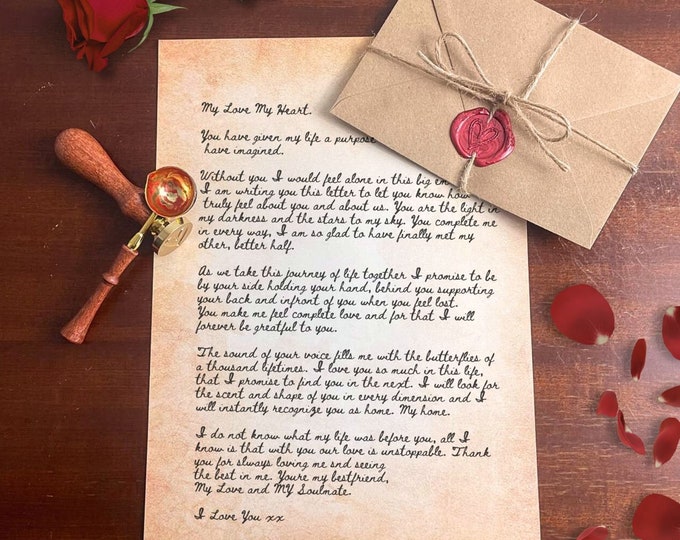 My Love My Heart.
You have given my life a purpose
have imagined.
Without you I would feel alone in this big
I am writing you this letter to let you know how
truly feel about you and about us. You are the light in
my darkness and the stars to my sky. You complete me
in every way, I am so glad to have finally met my
other, better half.
As we take this journey of life together I promise to be
by your side holding your hand, behind you supporting
your back and infront of you when you feel lost.
You make me feel complete love and for that I will
forever be greatful to you.
The sound of your voice fills me with the butterflies of
a thousand lifetimes. I love you so much in this life,
that I promise to find you in the next. I will look for
the scent and shape of you in every dimension and I
will instantly recognize you as home. My home.
I do not know what my life was before you, all I
know is that with you our love is unstoppable. Thank
you for slways loving me snd seeing
the best in me. Youre my bestfriend,
My Love and MY Soulmate.
I Love You xx